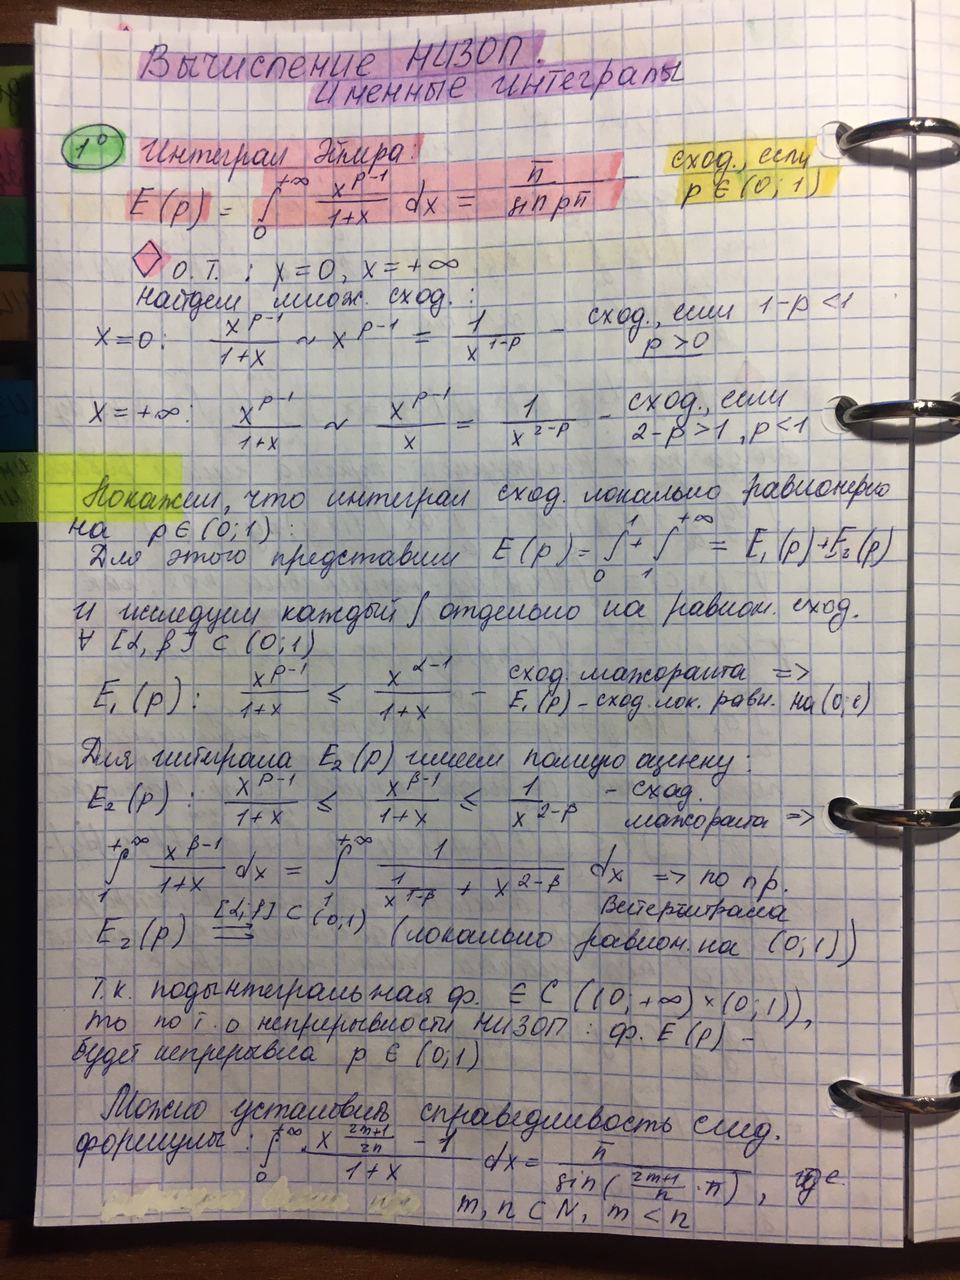 Вычисление НИЗОП.
Именные интегралы
1⁰ Интеграл Эйлера:
E(p) = ∫₀^{+∞} x^{p-1}/(1+x) dx = π/(sin pπ) - сход., если p ∈ (0;1)
О.Т.: x=0, x=+∞
найдем множ. сход.:
x=0: x^{p-1}/(1+x) ~ x^{p-1} = 1/x^{1-p} - сход., если 1-p <1
p>0
x=+∞: x^{p-1}/(1+x) ~ x^{p-1}/x = 1/x^{2-p} - сход., если 2-p>1, p<1
Покажем, что интеграл сход. локально равномерно
на p ∈ (0;1):
Для этого представим E(p) = ∫₀^1 + ∫₁^{+∞} = E₁(p)+E₂(p)
и исследуем каждый ∫ отдельно на равном. сход.
∀ [α, β] ⊂ (0;1)
E₁(p): x^{p-1}/(1+x) ≤ x^{α-1}/(1+x) - сход. мажоранта =>
E₁(p) - сход. лок. равн. на (0;1)
Для интеграла E₂(p) имеем полную оценку:
E₂(p): x^{p-1}/(1+x) ≤ x^{β-1}/(1+x) ≤ 1/x^{2-β} - сход. мажоранта =>
∫₁^{+∞} x^{β-1}/(1+x) dx = ∫₁^{+∞} 1/(1/x^{1-β} + x^{2-β}) dx => по пр. Вейерштрасса
E₂(p) ⇉^{[α;β] ⊂ (0,1)} (локально равном. на (0;1))
Т.к. подынтегральная ф. ∈ C ((0;+∞)×(0;1)),
то по т. о непрерывности НИЗОП: ф. E(p) -
будет непрерывна p ∈ (0;1)
Можно установить справедливость след.
формулы: ∫₀^{+∞} x^{(2m+1)/2n - 1}/(1+x) dx = π/(sin((2m+1)/n · π)), где
m, n ⊂ N, m < n